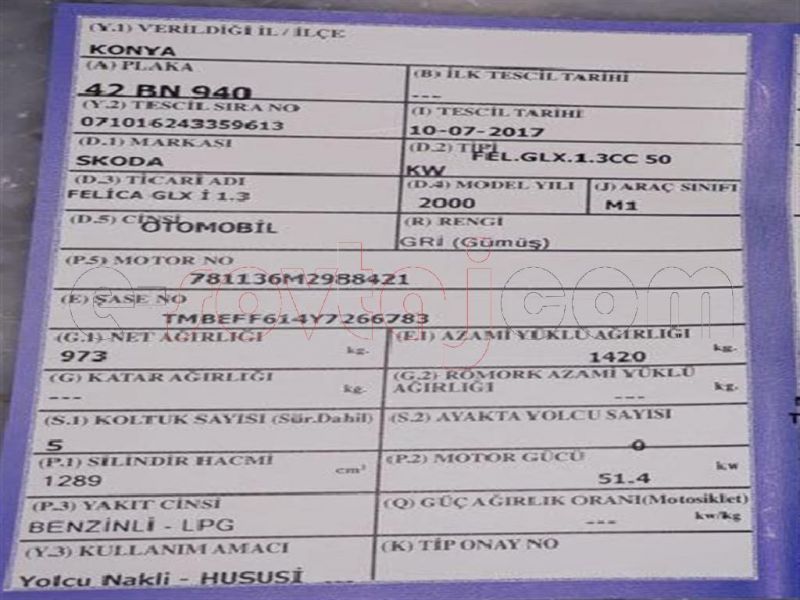 (Y.1) VERİLDİĞİ İL / İLÇE
KONYA
(A) PLAKA
42 BN 940
(B) İLK TESCİL TARİHİ
---
(Y.2) TESCİL SIRA NO
071016243359613
(I) TESCİL TARİHİ
10-07-2017
(D.1) MARKASI
SKODA
(D.2) TİPİ
FEL.GLX.1.3CC 50
KW
(D.3) TİCARİ ADI
FELİCA GLX İ 1.3
(D.4) MODEL YILI
2000
(J) ARAÇ SINIFI
M1
(D.5) CİNSİ
OTOMOBİL
(R) RENGİ
GRİ (Gümüş)
(P.5) MOTOR NO
781136M2988421
(E) ŞASE NO
TMBEFF614Y7266783
(G.1) NET AĞIRLIĞI
973 kg.
(F.1) AZAMİ YÜKLÜ AĞIRLIĞI
1420 kg.
(G) KATAR AĞIRLIĞI
--- kg.
(G.2) RÖMORK AZAMİ YÜKLÜ
AĞIRLIĞI
--- kg.
(S.1) KOLTUK SAYISI (Sür.Dahil)
5
(S.2) AYAKTA YOLCU SAYISI
0
(P.1) SİLİNDİR HACMİ
1289 cm³
(P.2) MOTOR GÜCÜ
51.4 kw
(P.3) YAKIT CİNSİ
BENZİNLİ - LPG
(Q) GÜÇ AĞIRLIK ORANI(Motosiklet)
--- kw/kg
(Y.3) KULLANIM AMACI
Yolcu Nakli - HUSUSİ ---
(K) TİP ONAY NO
e-rovtaj.com